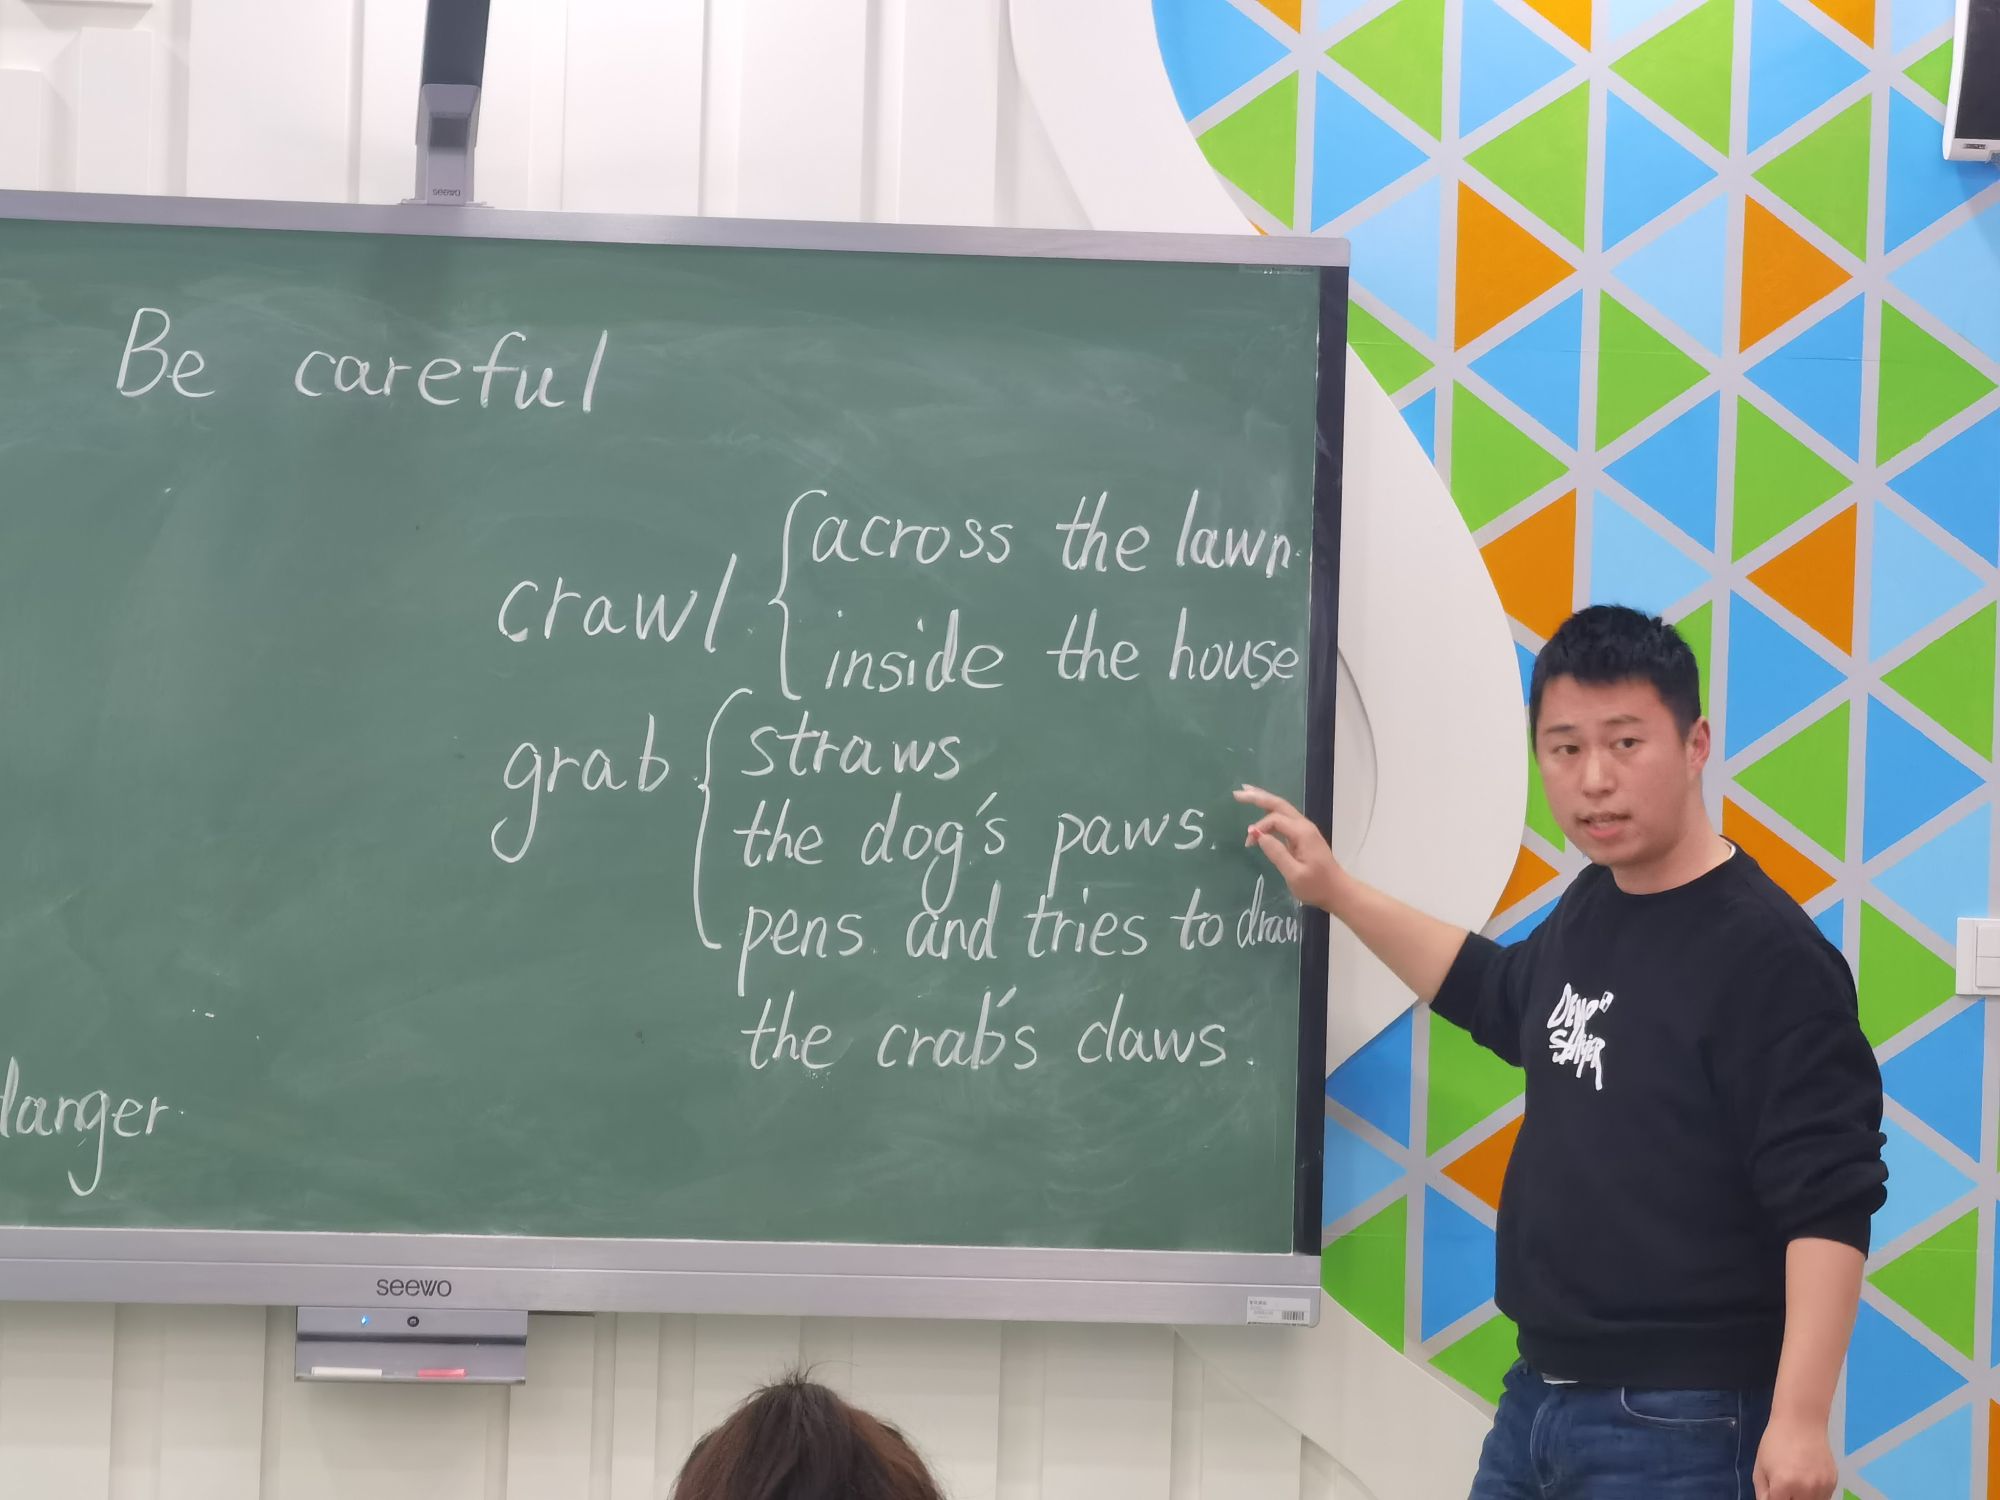 seewo
Be careful
crawl { across the lawn.
inside the house
grab { straws
the dog's paws.
pens. and tries to draw
the crab's claws.
danger.
seewo